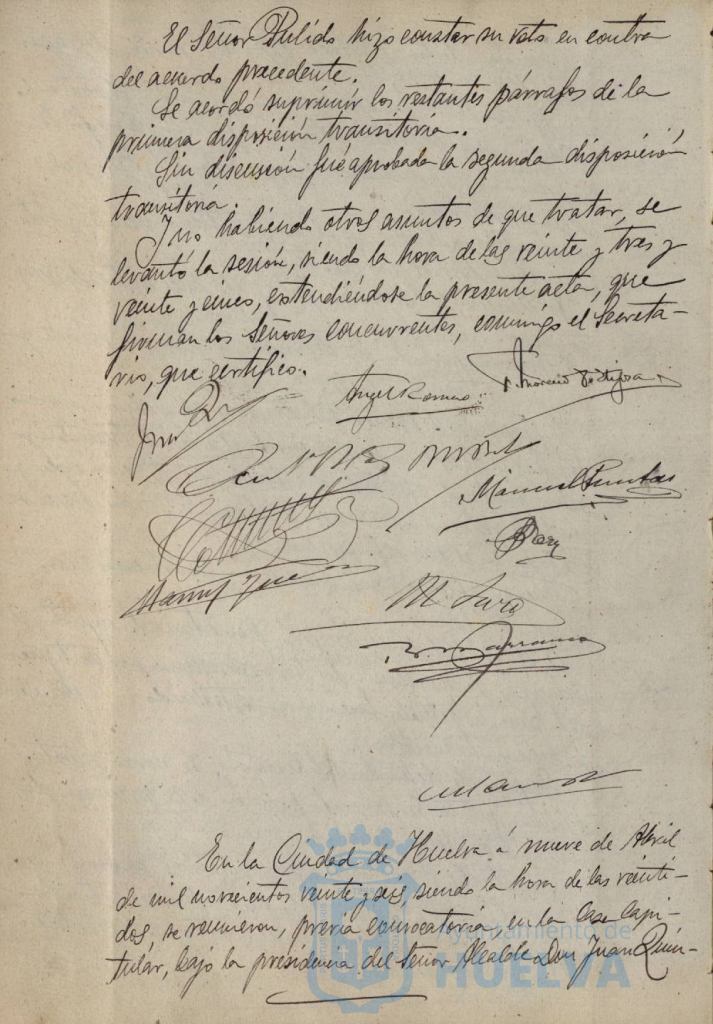 El Señor Pulido hizo constar su voto en contra
del acuerdo precedente.
Se acordó suprimir los restantes párrafos de la
primera disposición transitoria.
Sin discusión fué aprobada la segunda disposición
transitoria.
Y no habiendo otros asuntos de que tratar, se
levantó la sesión, siendo la hora de las veinte y tres y
veinte y cinco, extendiéndose la presente acta, que
firman los Señores concurrentes, conmigo el Secreta-
rio, que certifico.
Angel Romero
Manuel
M.
En la Ciudad de Huelva á nueve de Abril
de mil novecientos veinte y seis, siendo la hora de las veinti-
dos, se reunieron, previa convocatoria, en la Casa Capi-
tular, bajo la presidencia del Señor Alcalde Don Juan Quin-
Ayuntamiento de
HUELVA